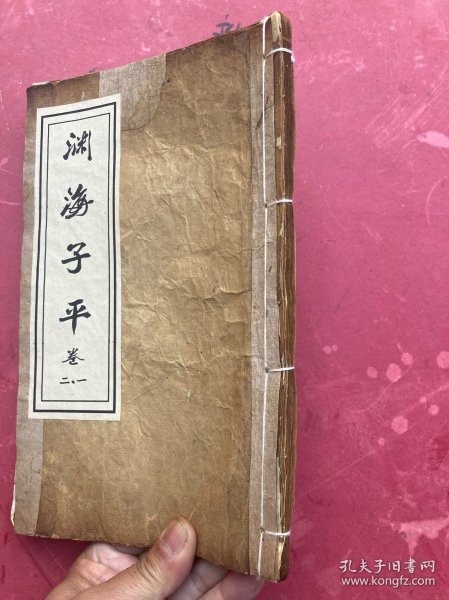 渊海子平
卷
二、一
孔夫子旧书网
www.kongfz.com